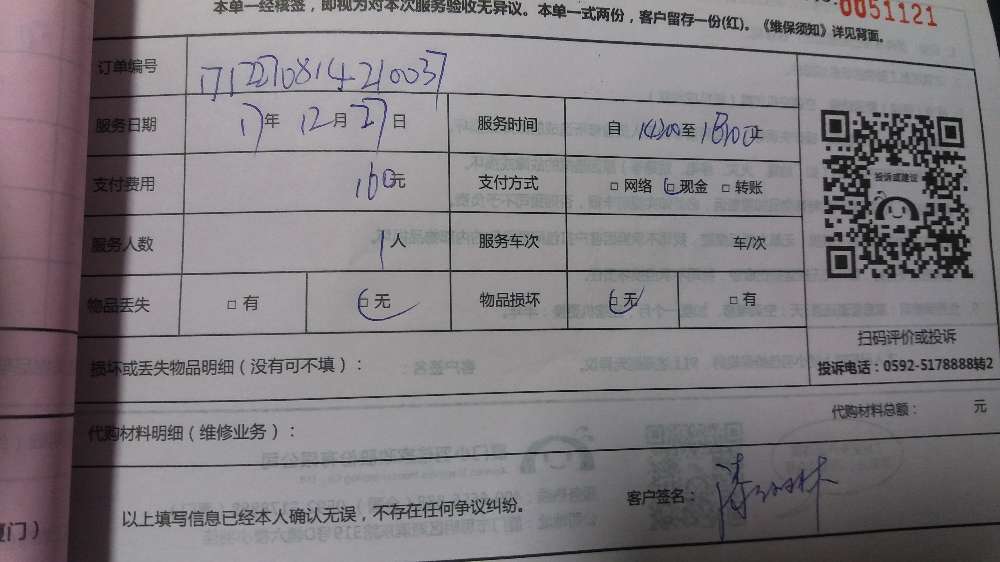 本单一经核签，即视为对本次服务验收无异议。本单一式两份，客户留存一份(红)。《维保须知》详见背面。
0051121
订单编号 171227081421003
服务日期 17年 12月 27日 服务时间 自 至
支付费用 160元 支付方式 □ 网络 □ 现金 □ 转账
服务人数 1人 服务车次 车/次
物品丢失 □ 有 □ 无 物品损坏 □ 无 □ 有
投诉或建议
扫码评价或投诉
投诉电话：0592-5178888转2
损坏或丢失物品明细（没有可不填）：
代购材料总额： 元
代购材料明细（维修业务）：
以上填写信息已经本人确认无误，不存在任何争议纠纷。
客户签名：
厦门）